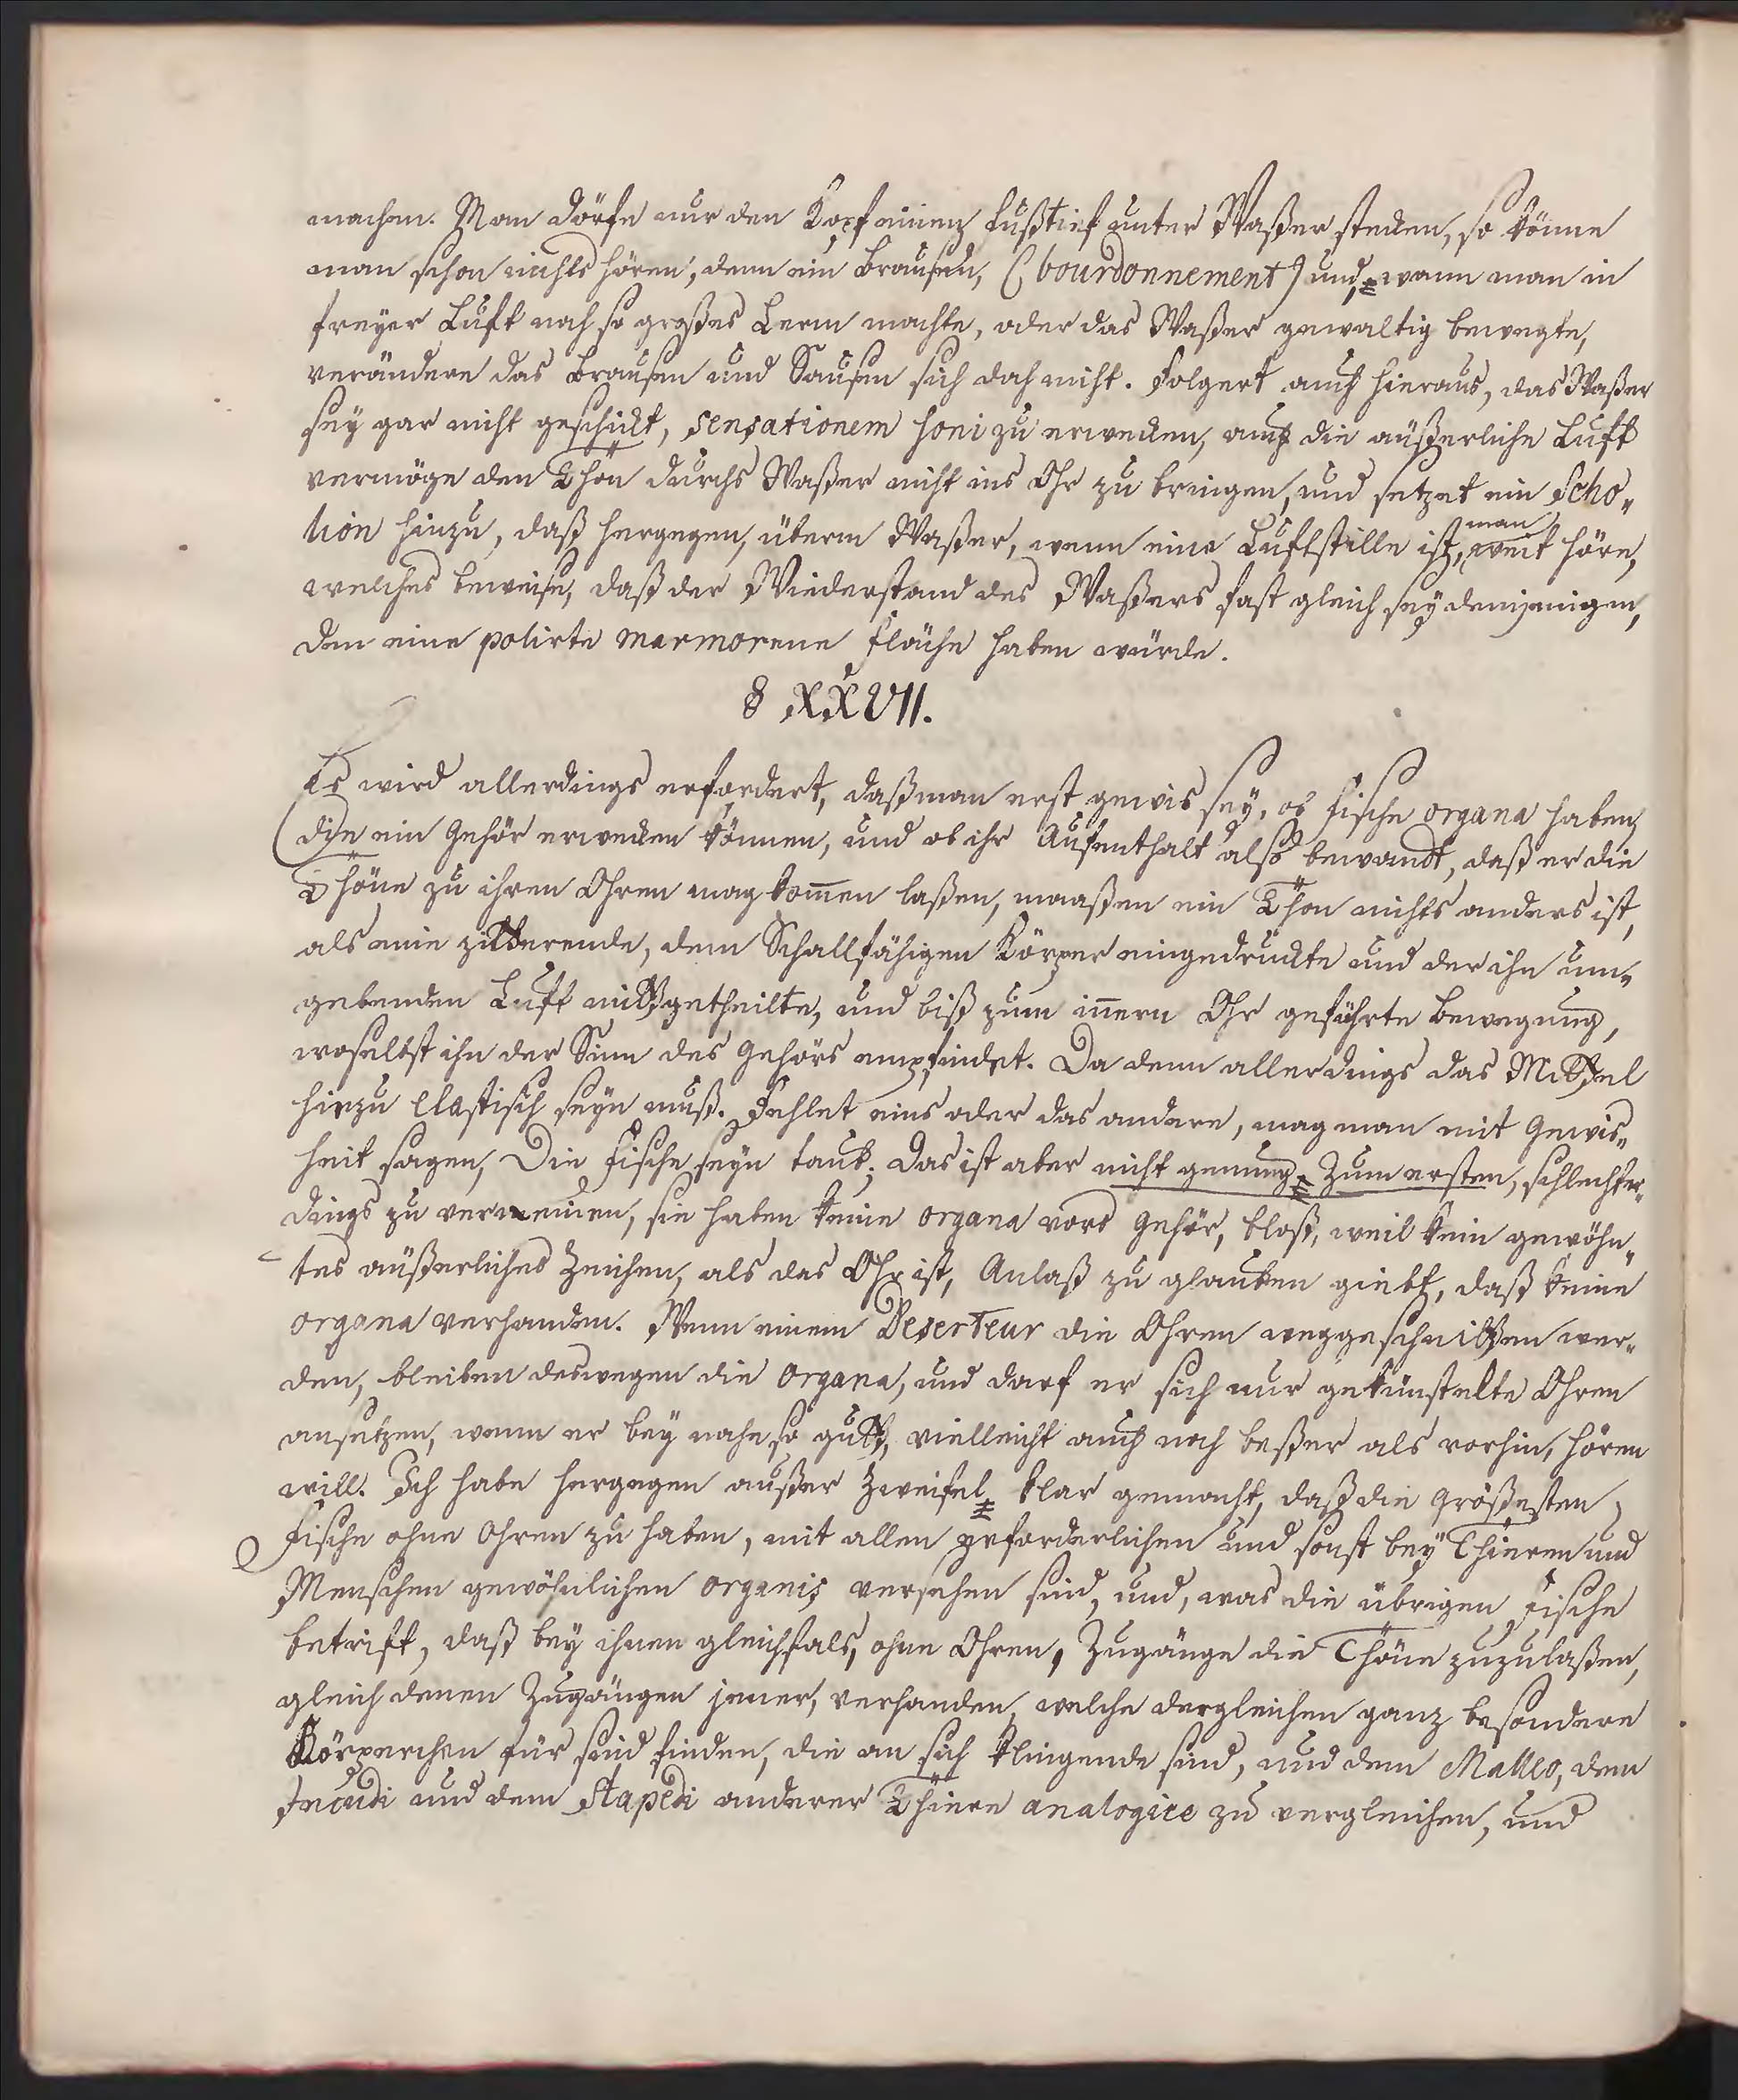 machen. Man dörfe nur den Kopf einen Fußtief unter Waßer stecken, so könne
man schon nichts hören, denn ein Brausen, (bourdonnement) und, wann man in
freyer Luft noch so großes Lerm machte, oder das Waßer gewaltig bewegte,
verändere das Brausen und Sausen sich doch nicht. Folgert auch hieraus, das Waßer
sey gar nicht geschickt, sensationem soni zu erwecken, auch die äußerliche Luft
vermöge den Thon durchs Waßer nicht ins Ohr zu bringen, und setzet ein Scho„
lion hinzu, daß hergegen, überm Waßer, wenn eine Luftstille ist, man weit höre,
welches beweise, daß der Wiederstand des Waßers fast gleich sey demjenigen,
den eine polirte marmorene Fläche haben würde.
§ XXVII.
Es wird allerdings erfordert, daß man erst gewis sey, ob Fische organa haben,
die ein Gehör erwecken können, und ob ihr Aufenthalt also bewandt, daß er die
Thöne zu ihren Ohren mag kom̅en laßen, maaßen ein Thon nichts anders ist,
als eine zitterende, dem Schallfähigen Körper eingedruckte und der ihn um„
gebenden Luft mitgetheilte, und biß zum in̅ern Ohr geführte Bewegung,
woselbst ihn der Sinn des Gehörs empfindet. Da denn allerdings das Mittel
hiezu elastisch seyn muß. Fehlet eins oder das andere, mag man mit Gewis„
heit sagen, Die Fische seyn taub; Das ist aber nicht genung, zum ersten, schlechter„
dings zu verneinen, sie haben keine organa vors Gehör, bloß, weil kein gewöhn„
tes äußerliches Zeichen, als das Ohr ist, Anlaß zu glauben giebt, daß keine
organa verhanden. Wenn einem Deserteur die Ohren weggeschnitten wer„
den, bleiben deswegen die organa, und darf er sich nur gekünstelte Ohren
ansetzen, wenn er bey nahe so gut, vielleicht auch noch beßer als vorhin, hören
will. Ich habe hergegen außer Zweifel klar gemacht, daß die größesten
Fische ohne Ohren zu haben, mit allen erforderlichen und sonst bey Thieren und
Menschen gewöhnlichen organis versehen sind, und, was die übrigen Fische
betrift, daß bey ihnen gleichfals, ohne Ohren, Zugänge die Thöne zuzulaßen,
gleich denen Zugängen jener, verhanden, welche dergleichen ganz besondere
Körperchen für sind finden, die an sich klingende sind, und dem Malleo, dem
Incudi und dem Stapedi anderer Thiere analogice zu vergleichen, und